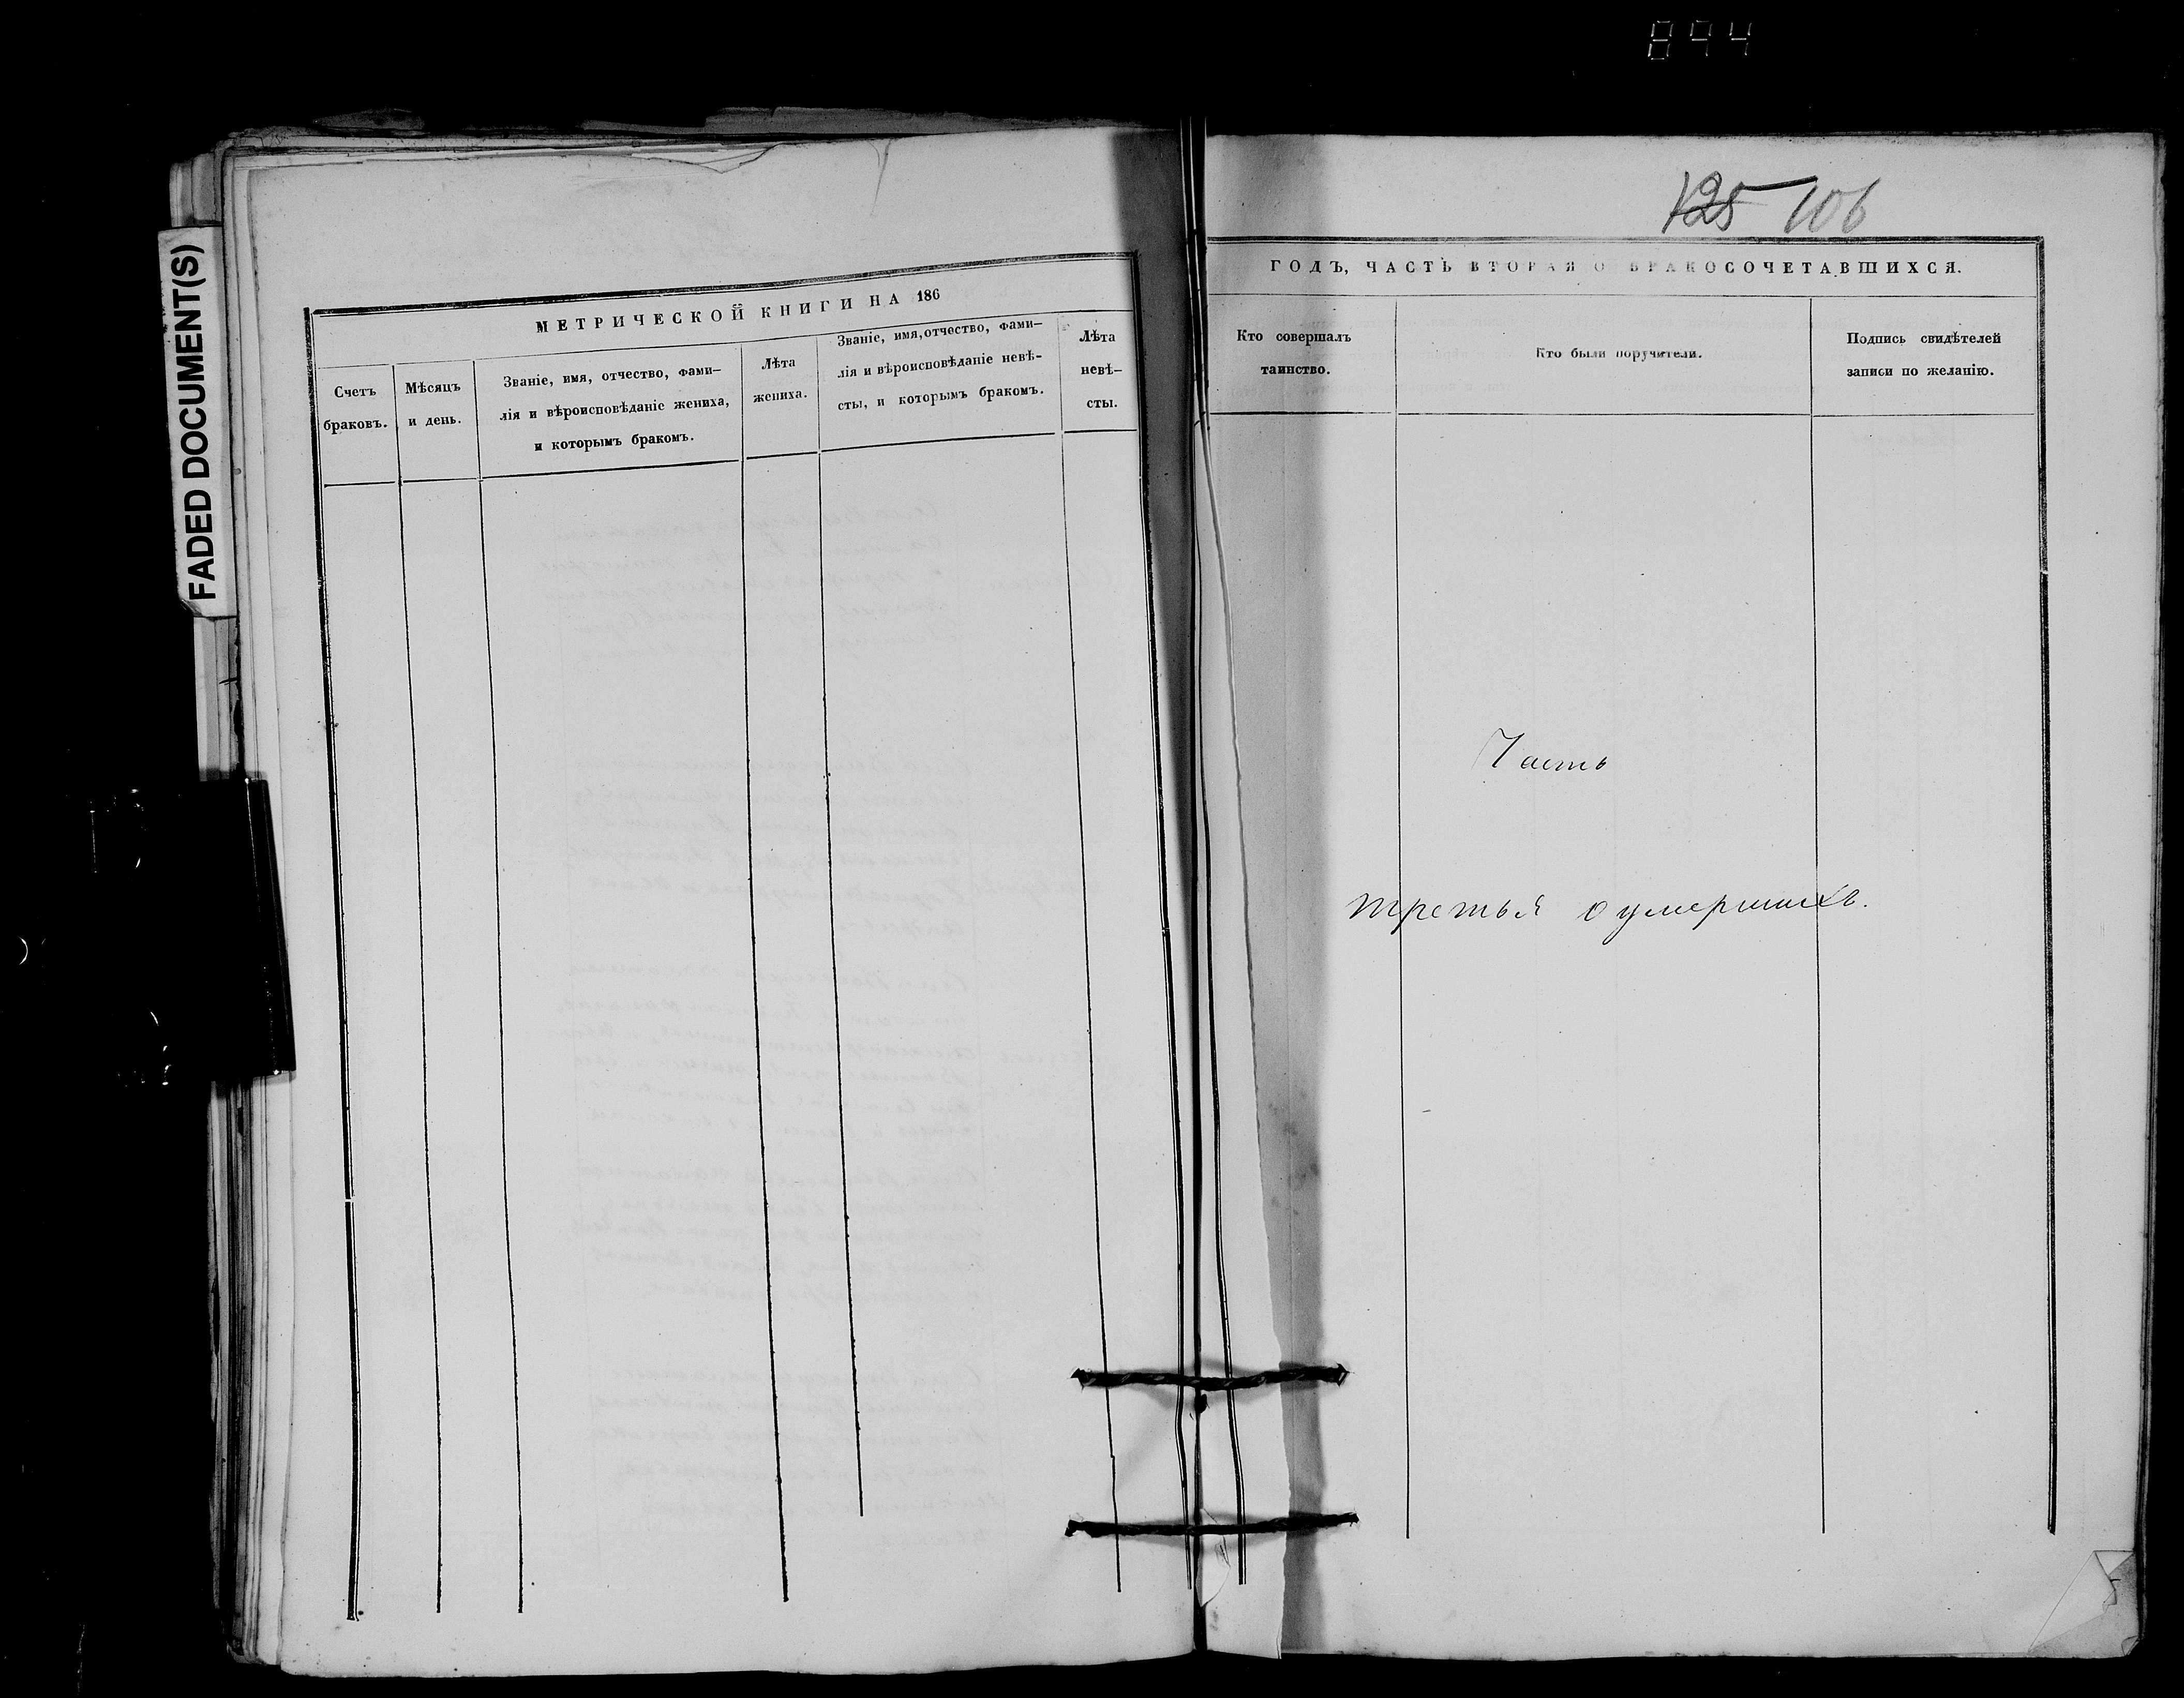 894
FADED DOCUMENT(S)
МЕТРИЧЕСКОЙ КНИГИ НА 186
Счетъ
браковъ.
Мѣсяцъ
и день.
Званіе, имя, отчество, фами–
лія и вѣроисповѣданіе жениха,
и которымъ бракомъ.
Лѣта
жениха.
Званіе, имя, отчество, фами–
лія и вѣроисповѣданіе невѣ–
сты, и которымъ бракомъ.
Лѣта
невѣ–
сты.
125 106
ГОДЪ, ЧАСТЬ ВТОРАЯ О БРАКОСОЧЕТАВШИХСЯ.
Кто совершалъ
таинство.
Кто были поручители.
Подпись свидѣтелей
записи по желанію.
Часть
третья о умершихъ.